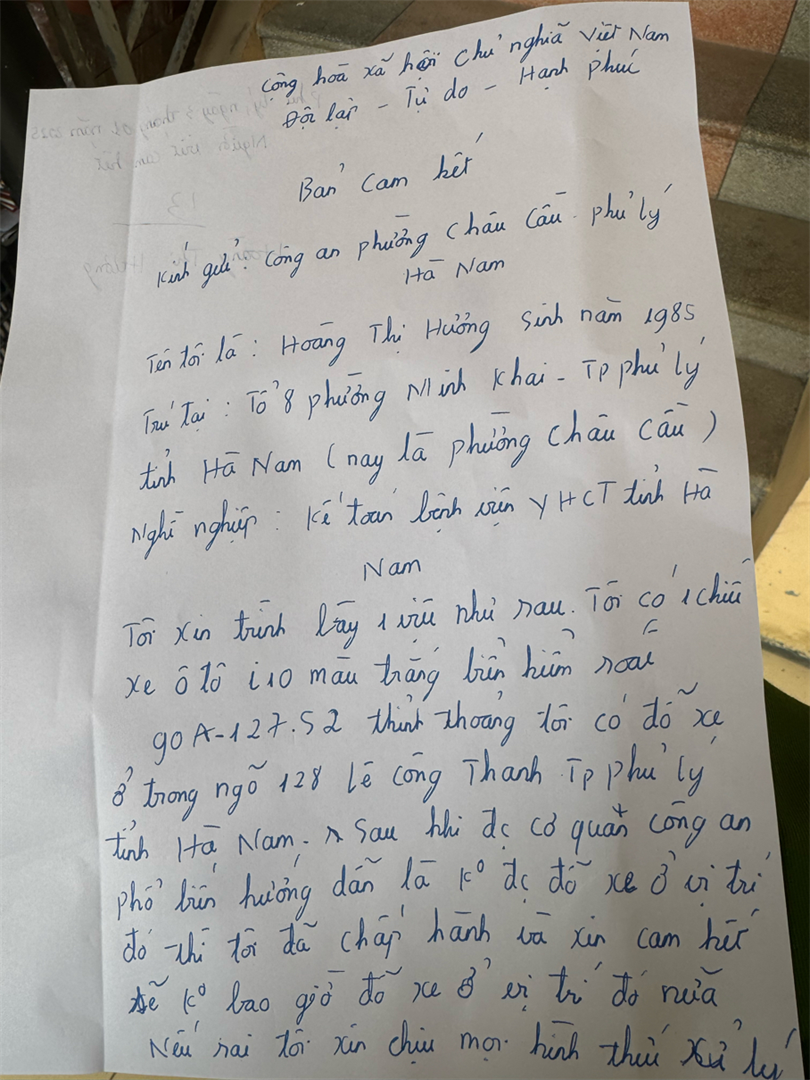 Cộng hoà xã hội chủ nghĩa Việt Nam
Độc lập - Tự do - Hạnh phúc
Bản cam kết
Kính gửi: Công an phường Châu Cầu - Phủ Lý
Hà Nam
Tên tôi là: Hoàng Thị Hường sinh năm 1985
Trú tại: Tổ 8 phường Minh Khai - Tp phủ lý
tỉnh Hà Nam (nay là phường Châu Cầu)
Nghề nghiệp: Kế toán bệnh viện YHCT tỉnh Hà
Nam
Tôi xin trình bày 1 việc như sau. Tôi có 1 chiếc
xe ô tô i10 màu trắng biển kiểm soát
90A-127.52 thỉnh thoảng tôi có đỗ xe
ở trong ngõ 128 Lê Công Thanh Tp phủ lý
tỉnh Hà Nam. Sau khi đc cơ quan công an
phổ biến hướng dẫn là k° đc đỗ xe ở vị trí
đó thì tôi đã chấp hành và xin cam kết
sẽ k° bao giờ đỗ xe ở vị trí đó nữa
Nếu sai tôi xin chịu mọi hình thức xử lý